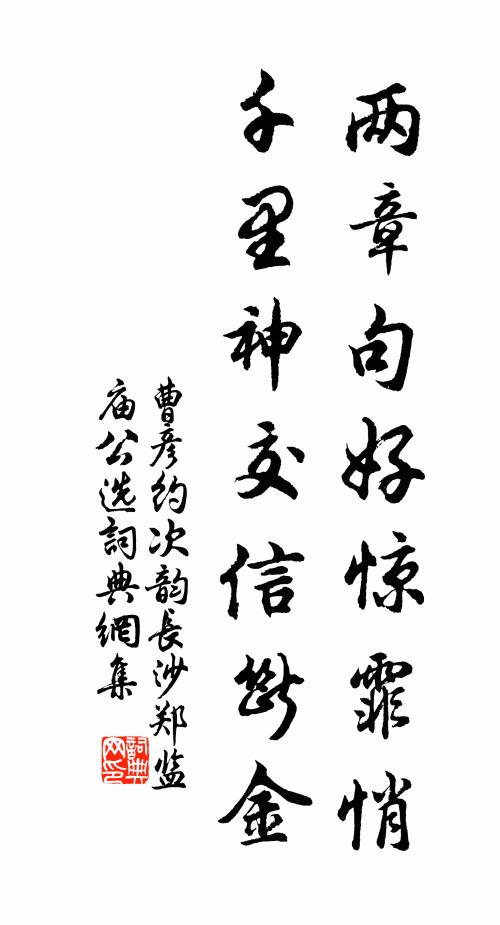 两章句好惊霏悄
千里神交信断金
曹彦约次韵長沙郑监
庙公选詞典網集
詞典
网印